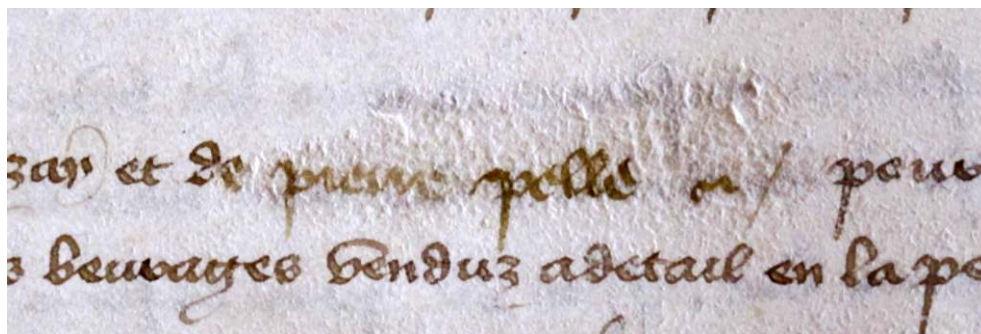 et de pierre pelle
beuvrages venduz a detail en la